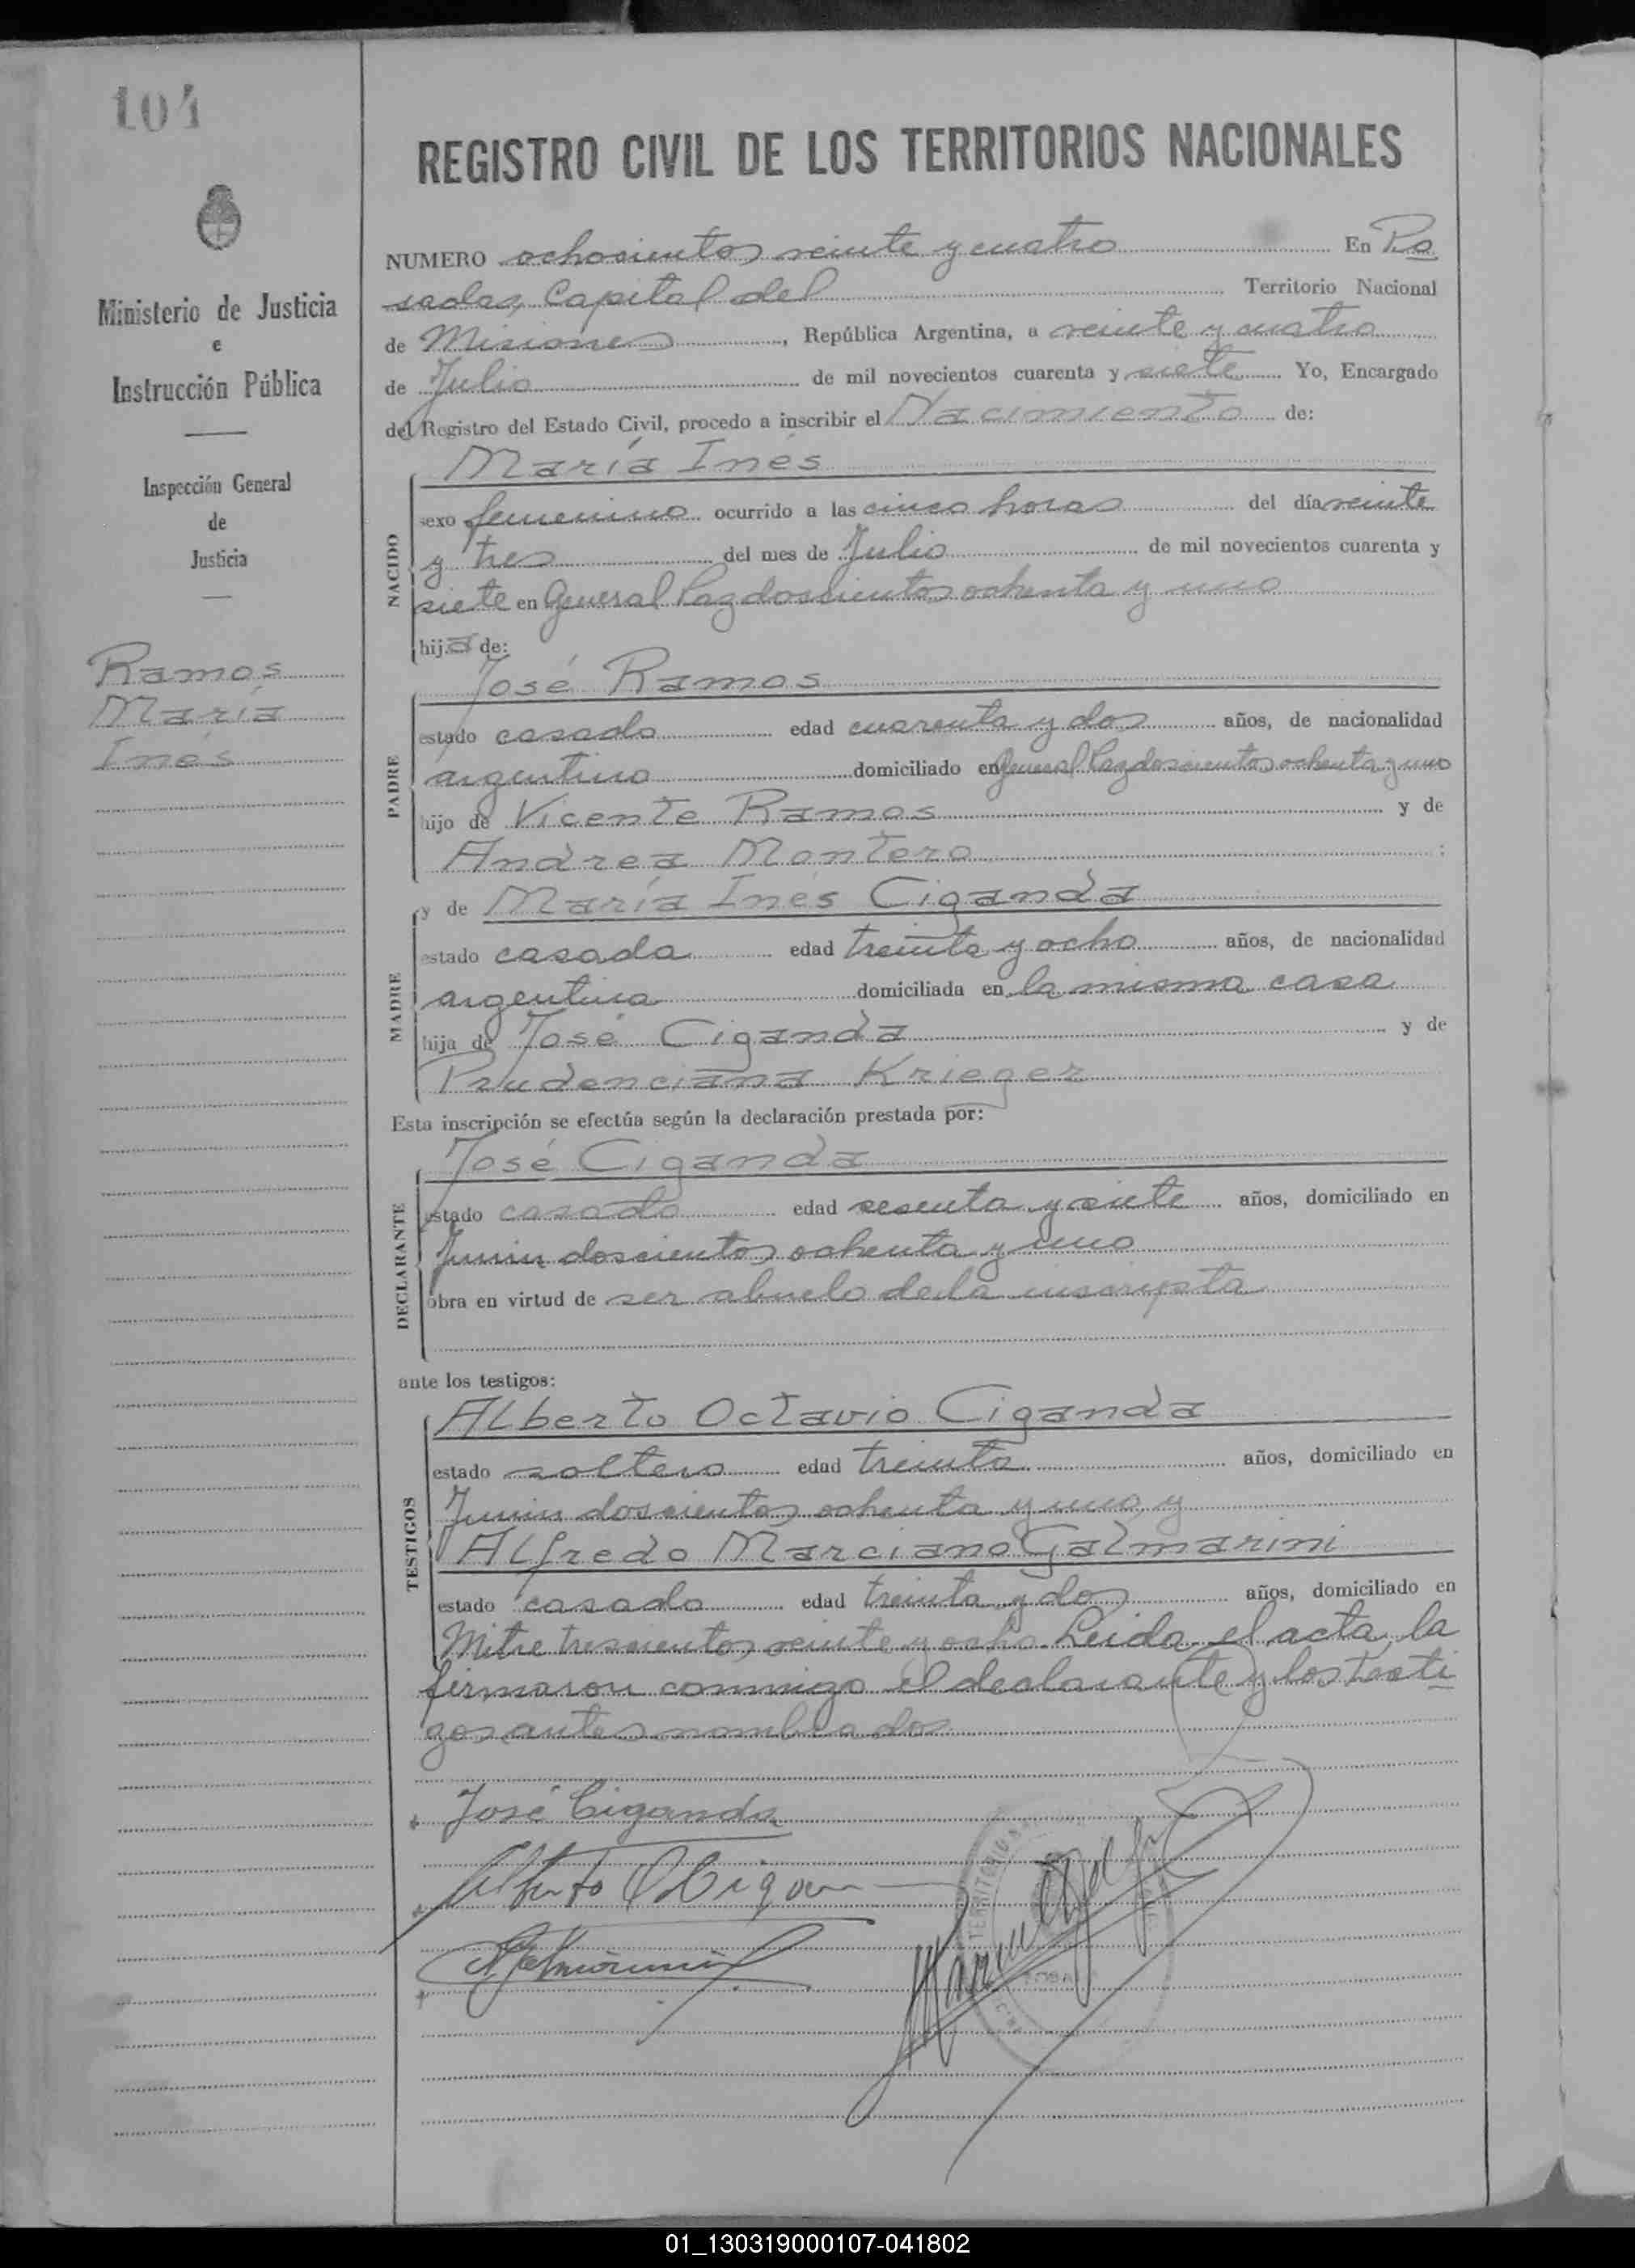 104
REGISTRO CIVIL DE LOS TERRITORIOS NACIONALES
Ministerio de Justicia
e
Instrucción Pública
Inspección General
de
Justicia
Ramos
María
Inés
NUMERO ochocientos veinte y cuatro En Po
sadas, Capital del Territorio Nacional
de Misiones, República Argentina, a veinte y cuatro
de Julio de mil novecientos cuarenta y siete Yo, Encargado
del Registro del Estado Civil, procedo a inscribir el Nacimiento de:
María Inés
NACIDO
sexo femenino ocurrido a las cinco horas del día veinte
y tres del mes de Julio de mil novecientos cuarenta y
siete en General Paz doscientos ochenta y uno
hija de:
José Ramos
PADRE
estado casado edad cuarenta y dos años, de nacionalidad
argentino domiciliado en General Paz doscientos ochenta y uno
hijo de Vicente Ramos y de
Andrea Montero :
y de María Inés Ciganda
MADRE
estado casada edad treinta y ocho años, de nacionalidad
argentina domiciliada en la misma casa
hija de José Ciganda y de
Prudenciana Krieger
Esta inscripción se efectúa según la declaración prestada por:
José Ciganda
DECLARANTE
estado casado edad sesenta y siete años, domiciliado en
Junin doscientos ochenta y uno
obra en virtud de ser abuelo de la inscripta
ante los testigos:
Alberto Octavio Ciganda
TESTIGOS
estado soltero edad treinta años, domiciliado en
Junin doscientos ochenta y uno y
Alfredo Marciano Galmarini
estado casado edad treinta y dos años, domiciliado en
Mitre trescientos veinte y ocho. Leida el acta, la
firmaron conmigo el declarante y los testi
gos antes nombrados
José Ciganda
Alberto O Cigan
Galmarini
TERRITORIO
01_130319000107-041802